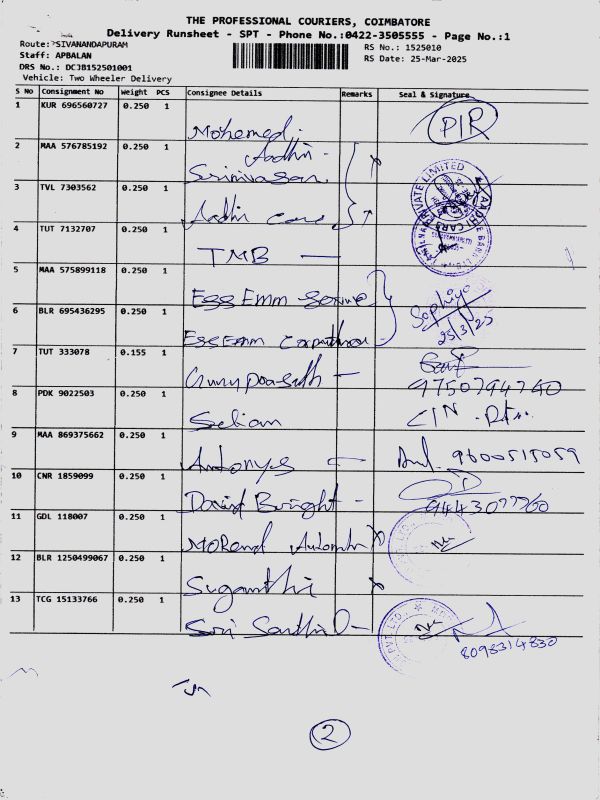 THE PROFESSIONAL COURIERS, COIMBATORE
Delivery Runsheet - SPT - Phone No.:0422-3505555 - Page No.:1
Route: SIVANANDAPURAM
RS No.: 1525010
Staff: APBALAN
RS Date: 25-Mar-2025
DRS No.: DCJB152501001
Vehicle: Two Wheeler Delivery
S No Consignment No Weight PCS Consignee Details Remarks Seal & Signature
1 KUR 696560727 0.250 1 Mohemed. PIR
2 MAA 576785192 0.250 1 Aadhi
Srinivasan.
3 TVL 7303562 0.250 1 Aadhi care
4 TUT 7132707 0.250 1 TMB
5 MAA 575899118 0.250 1 Ess Emm Service Sophiya
6 BLR 695436295 0.250 1 Ess Emm 25/3/25
7 TUT 333078 0.155 1 Guruprasath 9750794740
8 PDK 9022503 0.250 1 Selian
9 MAA 869375662 0.250 1 Antonys 9600515059
10 CNR 1859099 0.250 1 David Bright
11 GDL 118007 0.250 1
12 BLR 1250499067 0.250 1 Suganthi
13 TCG 15133766 0.250 1 Sri 8098314830
2